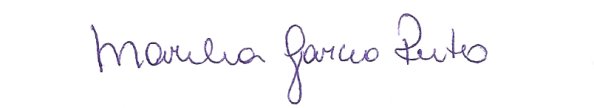 Marilia Garcia Pinto